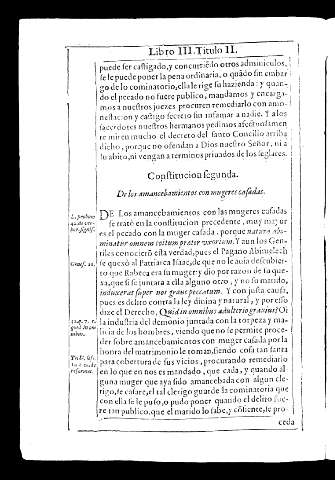 Libro III. Titulo II.
puede ser castigado, y concurriẽdo otros adminiculos,
se le puede poner la pena ordinaria, o quãdo sin embar
go de lo cominatorio, ella le rige su hazienda: y quan-
do el pecado no fuere publico, mandamos y encarga-
mos a nuestros juezes procuren remediarlo con amo-
nestacion y castigo secreto sin infamar a nadie. Y a los
sacerdotes nuestros hermanos pedimos afectuosamen
te miren mucho el decreto del santo Concilio arriba
dicho, porque no ofendan a Dios nuestro Señor, ni a
su abito, ni vengan a terminos privados de los seglares.
Constitucion segunda.
De los amancebamientos con mugeres casadas.
DE Los amancebamientos con las mugeres casadas
se trató en la constitucion precedente, muy mayor
es el pecado con la muger casada, porque natura abo-
minatur omnem coitum præter uxorium. Y aun los Gen-
tiles conociero ella verdad, pues el Pagano Abimelech
se quexó al Patriarca Isaac, de que no le avia descubier-
to que Rebeca era su muger y dio por razon de su que-
xa, que si se juntara a ella alguno otro, y no su marido,
induceras super nos grave peccatum. Y con justa causa,
pues es delito contra la ley divina y natural, y por esso
dize el Derecho, Quid in omnibus adulterio gravius? O i
la industria del demonio juntada con la torpeza y ma-
licia de los hombres, viendo que no se permite proce-
der sobre amancebamientos con muger casada por la
honra del matrimonio le toman, siendo cosa tan santa
para cobertura de sus vicios, procurando remediarlo
en lo que en nos es mandado, que cada, y quando al
guna muger que aya sido amancebada con algun cle-
rigo, se casare, el tal clerigo guarde la cominatoria que
con ella se le puso, o pudo poner quando el delito fue-
re tan publico, que el marido lo sabe, y cõsiente, se pro-
ceda
Genes. 26.